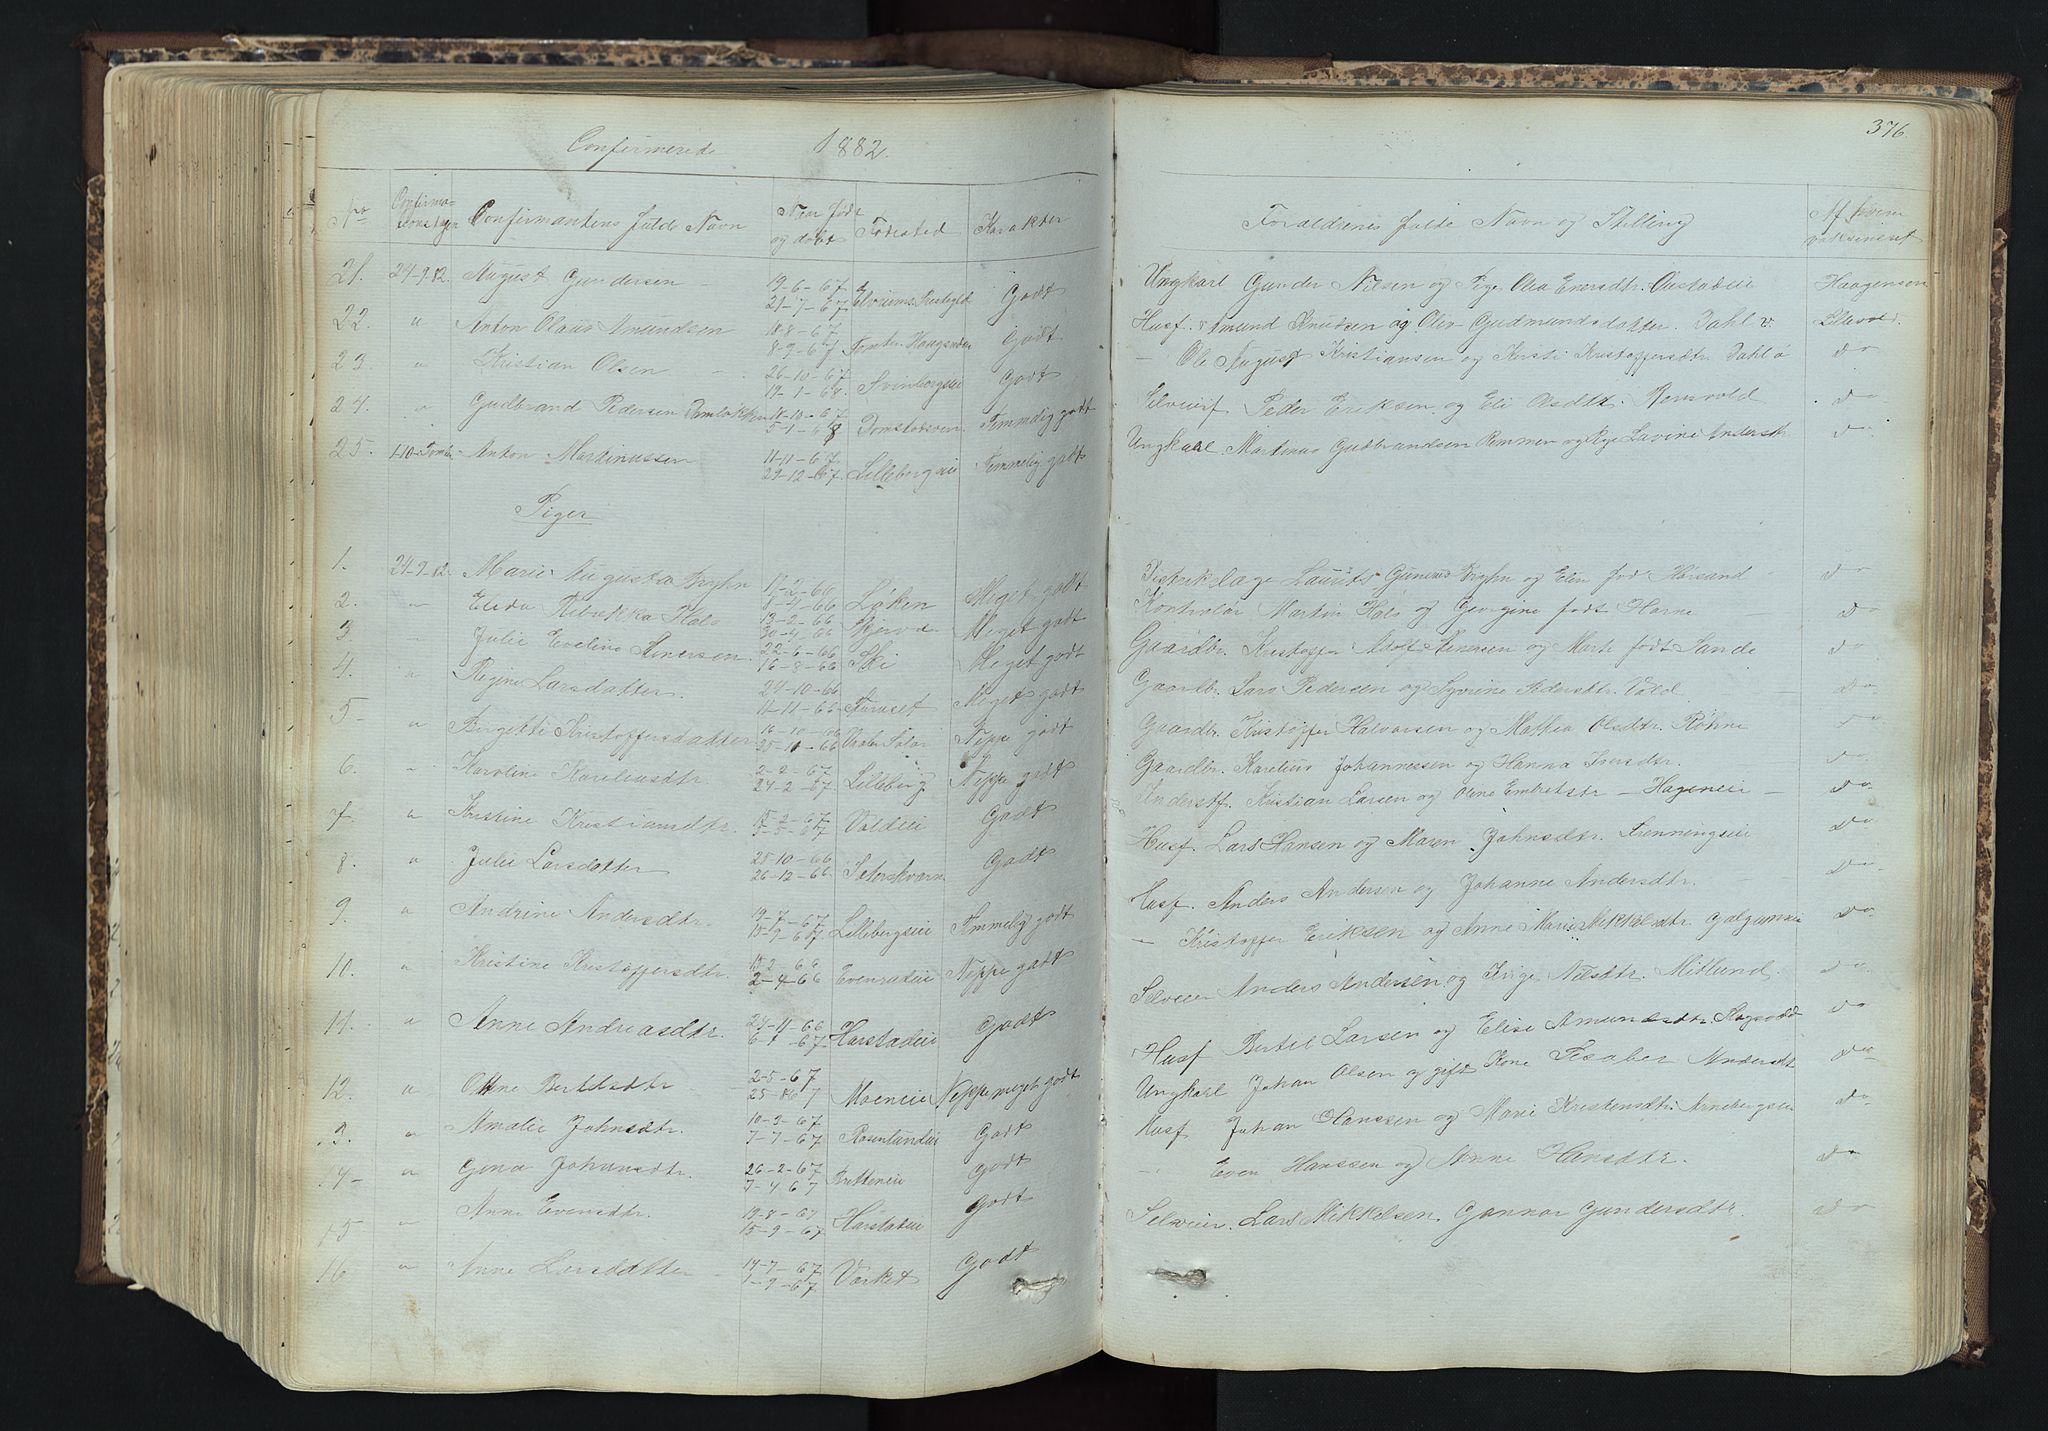 Confirmerede 1882.
376.
No Confirma-tionsdage Confirmantens fulde Navn Naar født og døbt Fødested Karakter
Forældrenes fulde Navn og Stilling Af hvem vaksineret
21. 24-9-82. August Gundersen 19-6-67 21-7-67 Elverums Godt
Ungkarl Gunder Nilsen og Pige Olea Haagensen
22. " Anton Olaus Amundsen 18-8-67 8-9-67 Godt
Husf. Amund Knudsen og Olea Gudmundsdatter. Dahl v. Lillevold.
23. " Kristian Olsen 26-10-67 19-1-68. Svenbergseie Godt
— Ole August Kristiansen og Kersti Kristoffersdtr. Dahl ø do
24. " Gudbrand Pedersen 5-1-68 Temmelig godt
Selveier Peder Eriksen og Eli Olsdtr. do
25. 1-10- Anton Martinussen 11-11-67 29-12-67. Lillebergseie Temmelig godt
Ungkarl Martinus Gudbrandsen Remmen og Pige Lavine Andersdtr do
Piger
1. 24-9-82. Marie Augusta Bryhn 8-4-66 Løken Meget godt
Distriktslæge Laurits Gunerius Bryhn og Elen født do
2. " Elida Rebekka Hals 13-2-66 30-4-66 Meget godt
Kontrolør Martin Hals og Georgine født Horne do
3. " Julie Eveline Stenersen. 22-6-66 16-8-66 Ski Meget godt
Gaardbr. Kristoffer Adolf Stenersen og Marte født Sande do
4. " Regine Larsdatter. 24-10-66 11-11-66 Furuset Meget godt
Gaardbr. Lars Pedersen og Syverine Pedersdtr. Vold do
5 " Birgitte Kristoffersdatter 16-10-66 Vaaler Solør Neppe godt
Gaardbr. Kristoffer Halvorsen og Mathea Olsdtr. Røhne do
6. " Karoline Kareliusdtr. 2-2-67 24-2-67. Lilleberg Neppe godt
Gaardbr. Karelius Johannessen og Hanna Iversdtr. do
7. " Kristine Kristiansdtr. 15-2-67 5-5-67 Voldeie Godt
Inderstf. Kristian Larsen og Oline Embretsdtr — Hageneie — do
8. " Julie Larsdatter 25-10-66 26-12-66. Sæterskværn Godt
Husf. Lars Hansen og Maren Johnsdtr. Grenningseie do
9. " Andrine Andersdtr. 19-7-67 15-9-67 Lillebergseie Temmelig godt
Husf. Anders Andersen og Johanne Andersdtr. do
10. " Kristine Kristoffersdtr. 15-2-66 2-4-66 Evenstadeie Neppe godt
— Kristoffer Eriksen og Anne Marie Mikkelsdtr do
11. " Anne Andreasdtr. 24-11-66 6-1-67. Harstadeie Godt
Selveier Anders Andersen og Inge Nilsdtr. Midlund do
12. " Oline Bertelsdtr 2-5-67 Moeneie Neppe meget godt
Husf Bertel Larsen og Elise Amundsdtr. do
13. " Amalie Johnsdtr. 10-3-67 7-7-67 Rosenlundeie Godt
Ungkarl Johan Olsen og gift Kone Andersdt do
14 " Gina Johansdtr. 26-2-67 7-4-67 Godt
Husf Johan Hanssen og Marie Kristensdtr. Arnebergseie do
15 " Anne Evensdtr. 19-8-67 15-9-67 Harstadeie Godt
— Even Hanssen og Anne Hansdtr. do
16 " Anne Larsdatter 14-7-67 1-9-67 Værket Godt
Selveier. Lars Mikkelsen Gunnor Gundersdtr. do